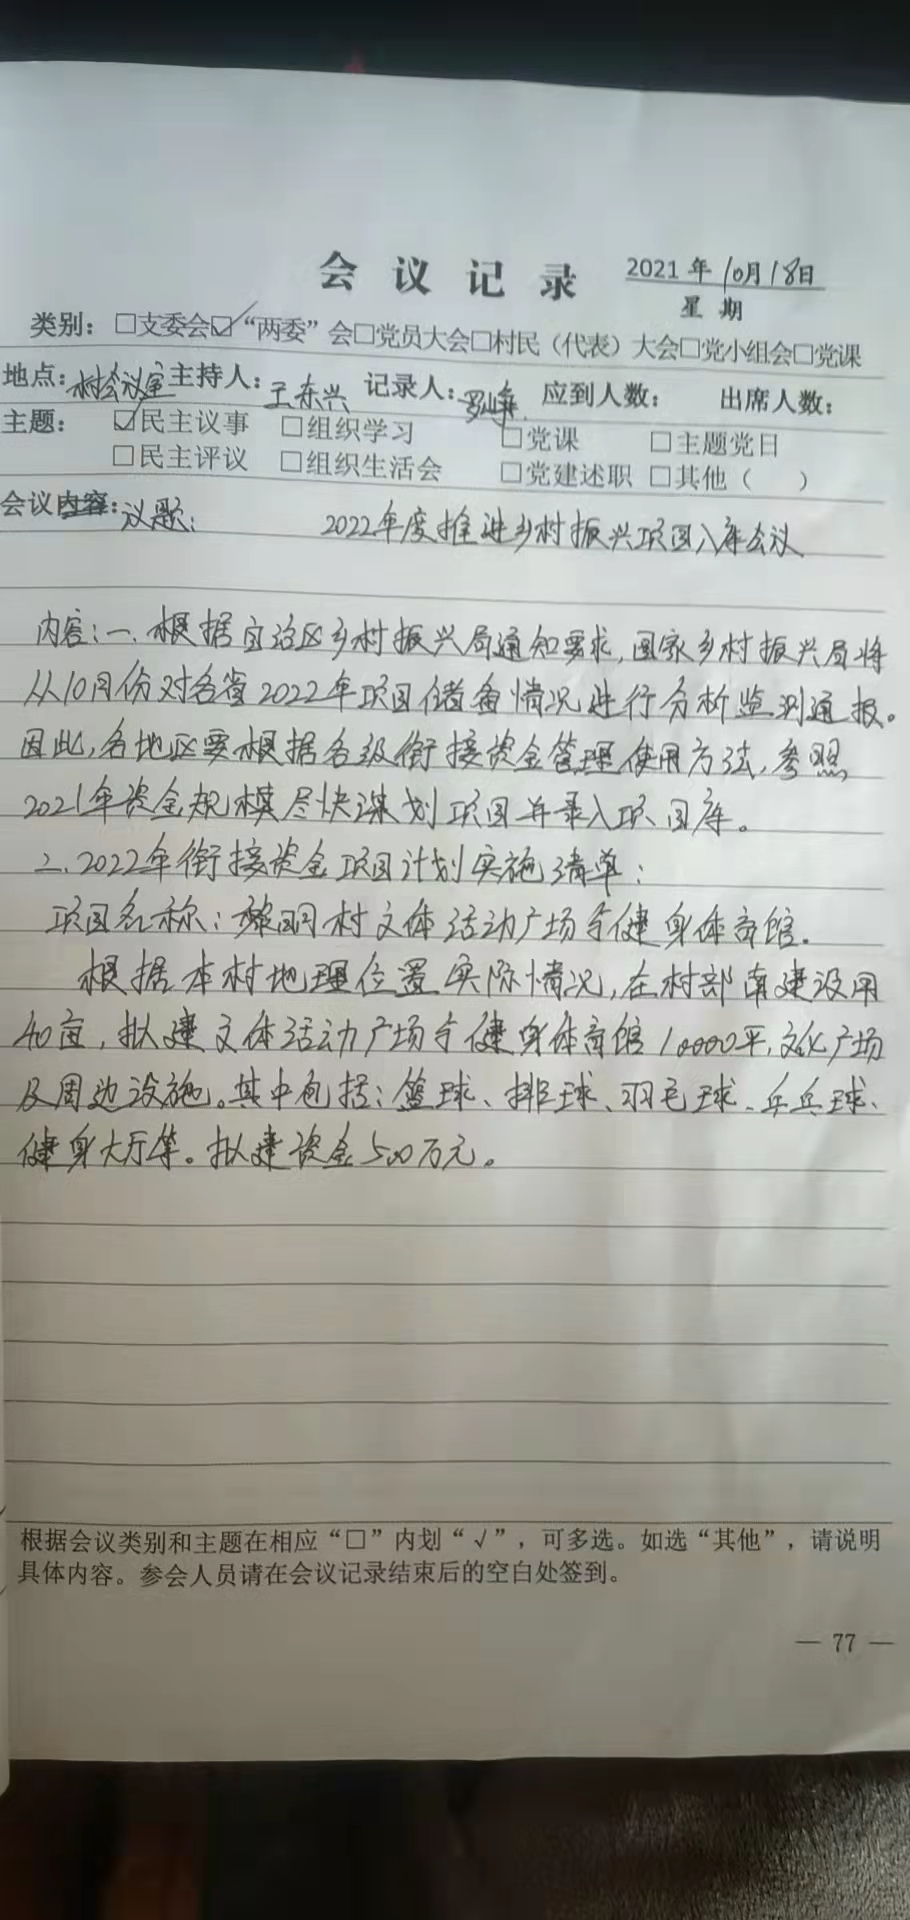 会 议 记 录 2021 年 10月18日
星 期
类别：□支委会☑“两委”会□党员大会□村民（代表）大会□党小组会□党课
地点：村会议室 主持人：王东兴 记录人：罗峰 应到人数： 出席人数：
主题： ☑民主议事 □组织学习 □党课 □主题党日
□民主评议 □组织生活会 □党建述职 □其他（ ）
会议内容：议题： 2022年度推进乡村振兴项目入库会议
内容：一、根据自治区乡村振兴局通知要求，国家乡村振兴局将
从10月份对各省2022年项目储备情况进行分析监测通报。
因此，各地区要根据各级衔接资金管理使用方法，参照
2021年资金规模尽快谋划项目并录入项目库。
二、2022年衔接资金项目计划实施清单：
项目名称：黎明村文体活动广场与健身体育馆.
根据本村地理位置实际情况，在村部南建设用
40亩，拟建文体活动广场与健身体育馆10000平，文化广场
及周边设施。其中包括：篮球、排球、羽毛球、乒乓球、
健身大厅等。拟建资金500万元。
根据会议类别和主题在相应“□”内划“√”，可多选。如选“其他”，请说明
具体内容。参会人员请在会议记录结束后的空白处签到。
— 77 —